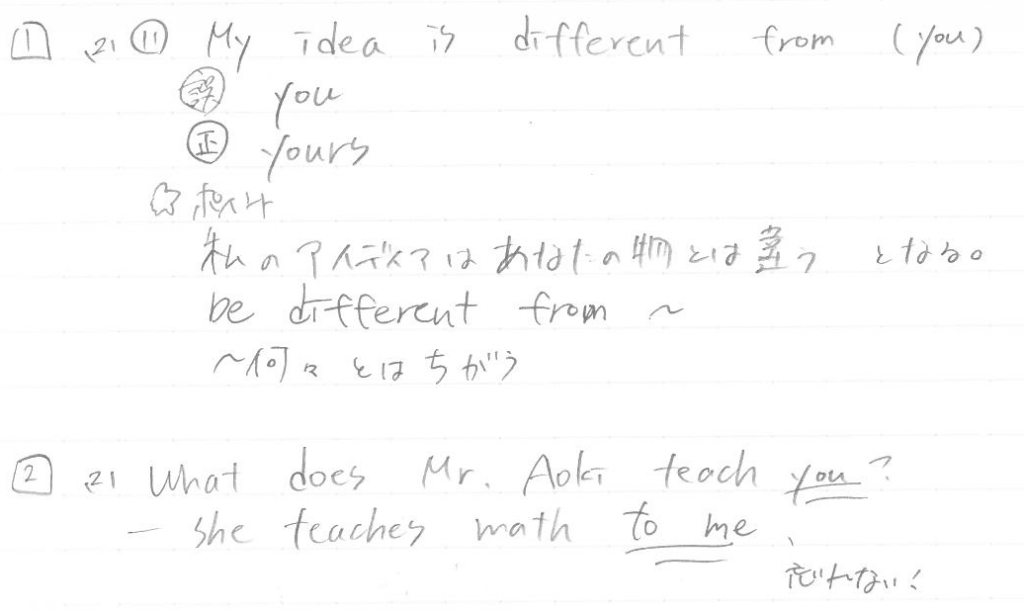 1 P.21 ⑪ My idea is different from (you)
誤 you
正 yours
☆ポイント
私のアイディアはあなたの物とは違う となる。
be different from ~
~何々とはちがう
2 P.21 What does Mr. Aoki teach you?
― she teaches math to me.
忘れない!